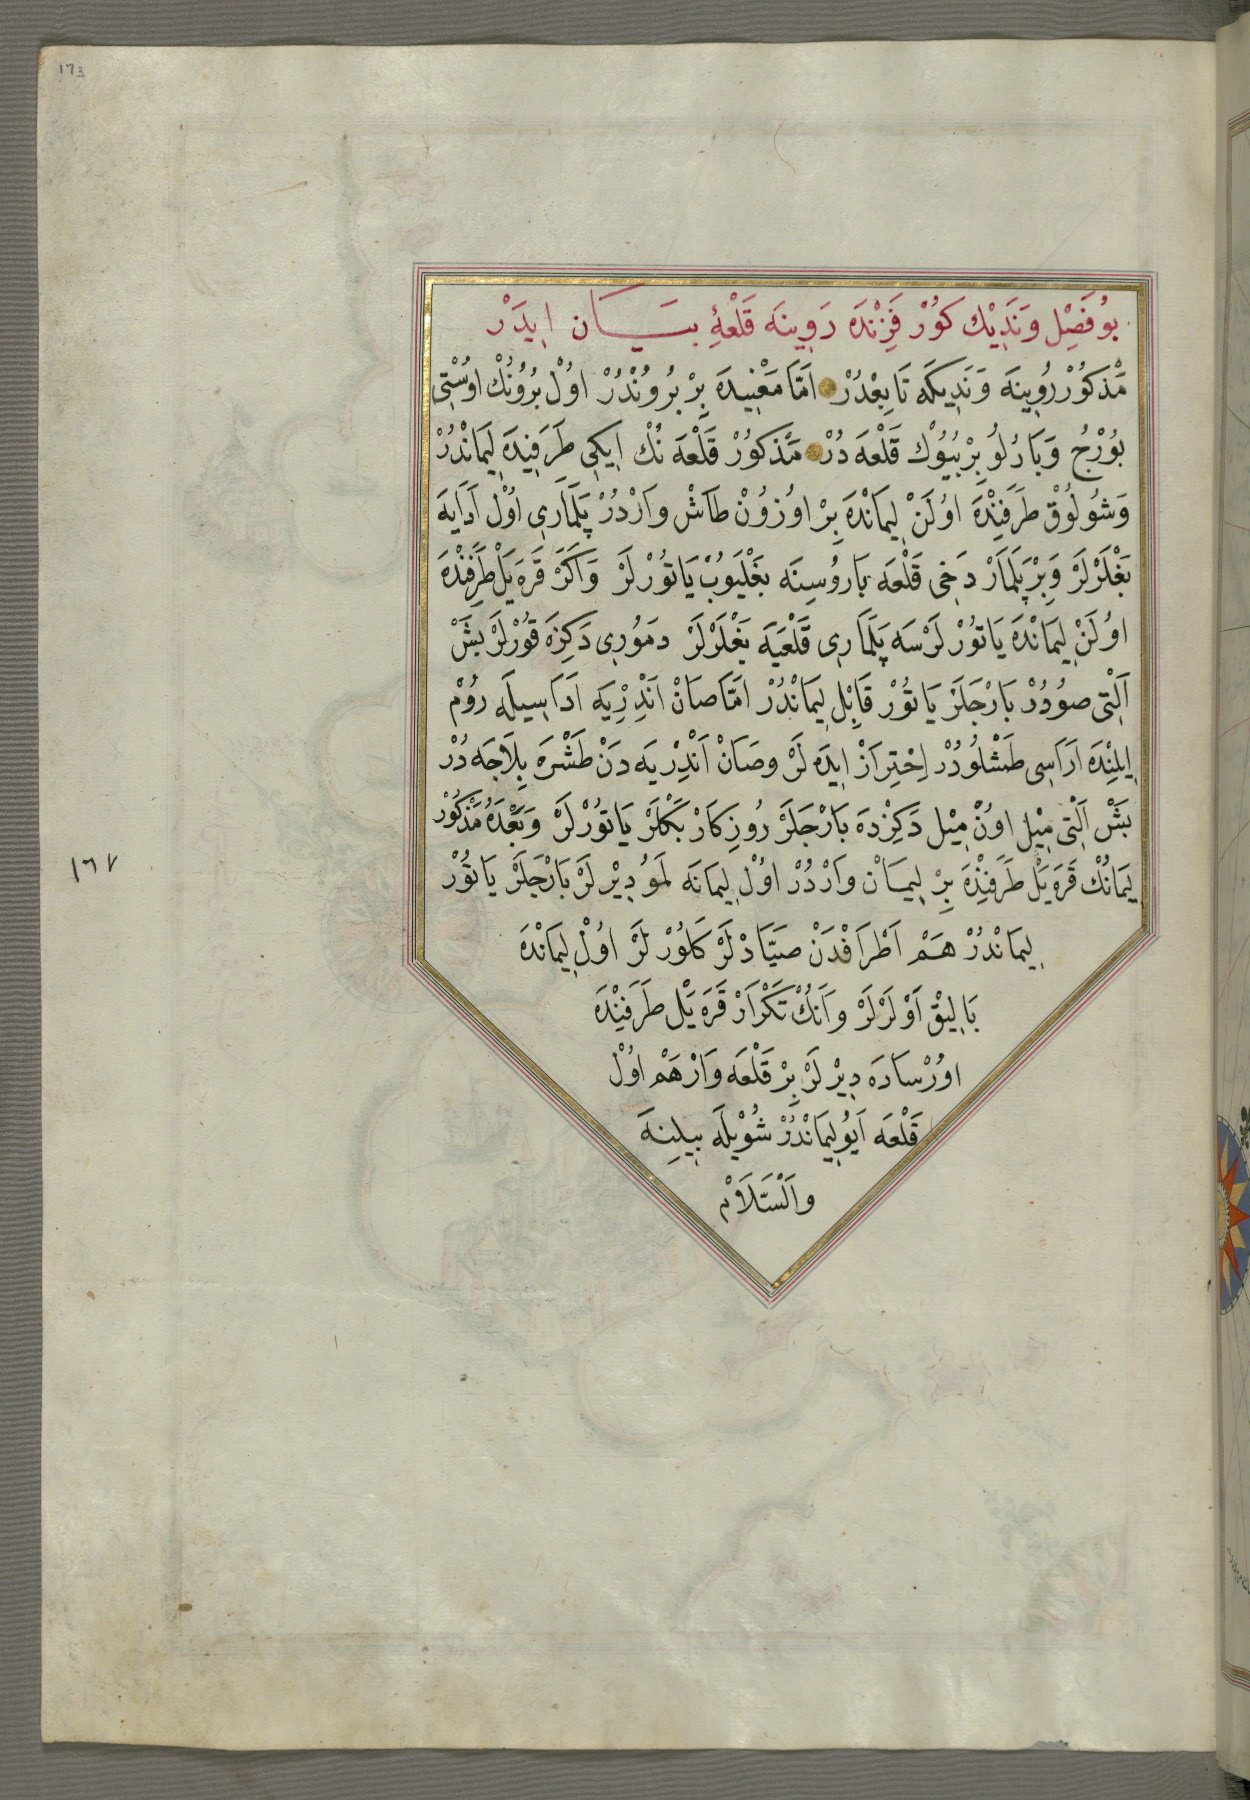 ١٦٧
بُو فَصِل وَنَدِيْك كُورْ فَزِنْدَه رَوِينَه قَلْعَهٔ بَيَان اِيدَرْ
مَذْكُورْ رُوِينَه وَنَدِيكَه تَابِعْدُرْ اَمَّا مَعْنِيدَه بِرْ بُرُونْدُرْ اُولْ بُرُونُكْ اُوسْتِى
بُورْجُ وَبَارُلُو بِرْ بُيُوكْ قَلْعَه دُرْ مَذْكُورْ قَلْعَه نُكْ اِيكِى طَرَفِيدَه لِيمَانْدُرْ
وَشُولُوقْ طَرَفِنْدَه اُولَنْ لِيمَانْدَه بِرْ اُوزُونْ طَاشْ وَارْدُرْ پَلَمَارِى اُولْ اَدَايَه
بَغْلَرْلَرْ وَبِرْ پَلَمَارْ دَخِى قَلْعَه بَارُوسِنَه بَغْلَيُوبْ يَاتُورْلَرْ وَاَكَرْ قَرَه يَلْ طَرَفِنْدَه
اُولَنْ لِيمَانْدَه يَاتُورْلَرْسَه پَلَمَارِى قَلْعَيَه بَغْلَرْلَرْ دَمُورِى دَكِزَه قُورْلَرْ بَشْ
اَلْتِى صُودُرْ بَارْجَلَرْ يَاتُورْ قَابِل لِيمَانْدُرْ اَمَّا صَانْ اَنْدِرِيَه اَدَاسِيلَه رُومْ
اِيلِنْدَه اَرَاسِى طَشْلُودُرْ اِحْتِرَازْ اِيدَه لَرْ وصَانْ اَنْدِرْيَه دَنْ طَشْرَه بِلَاجَه دُرْ
بَشْ اَلْتِى مِيْل اُونْ مِيْل دَكِزْدَه بَارْجَلَرْ رُوزِكَارْ بَكْلَرْ يَاتُورْلَرْ وَبَعْدَهُ مَذْكُورْ
لِيمَانُكْ قَرَه يَلْ طَرَفِنْدَه بِرْ لِيمَانْ وَارْدُرْ اُولْ لِيمَانَه لَمُو دِيْرلَرْ بَارْجَلَرْ يَاتُورْ
لِيمَانْدُرْ هَمْ اَطْرَافْدَنْ صَيَّادْلَرْ كَلُورْلَرْ اُولْ لِيمَانْدَه
بَالِيقْ اَوْلَرْلَرْ وَاَنُكْ تَكْرَارْ قَرَه يَلْ طَرَفِنْدَه
اُورْسَارَه دِيْرلَرْ بِرْ قَلْعَه وَارْ هَمْ اُولْ
قَلْعَه اَيُو لِيمَانْدُرْ شُوْيلَه بِيلِنَه
وَالسَّلَامْ